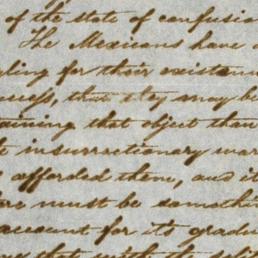 of the state of confusio
The Mexicans have
ling for their existen
cess, that they may be
aining that object than
insurrectionary war
afforded them, and it
must be somethin
account for it's gradu
that with the